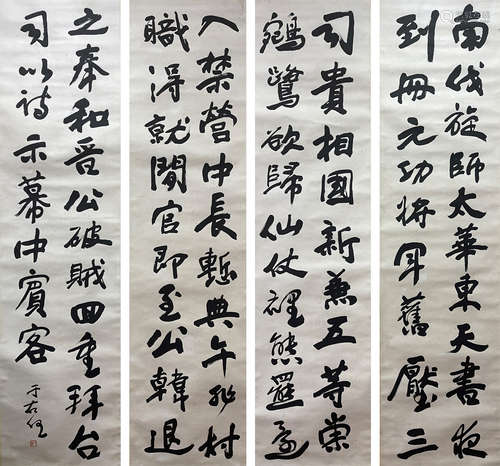 南伐旋師太華東天書夜
到冊元功將軍舊壓三
司貴相國新兼五等崇
鵷鷺欲歸仙仗裡熊羆還
入禁營中長慙典午非材
職得就閒官即至公韓退
之奉和晉公破賊回重拜台
司以詩示幕中賓客
于右任